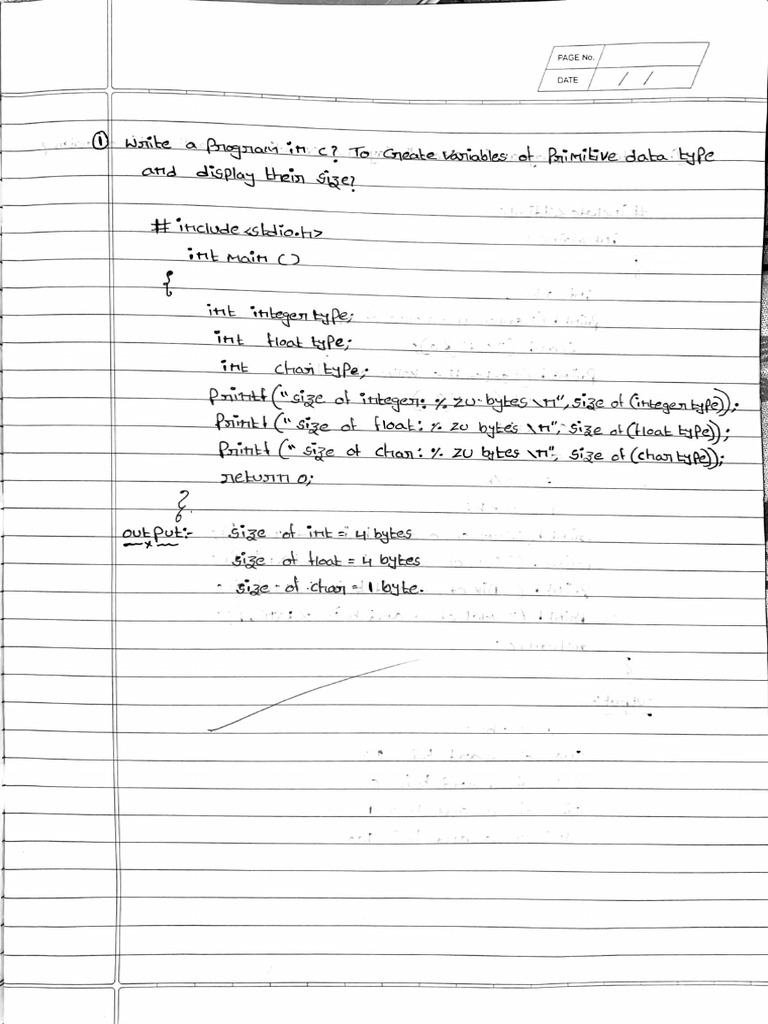 PAGE No.
DATE / /
① Write a program in C? To Create variables of Primitive data type
and display their size?
# include <stdio.h>
int main ()
{
int integer type;
int float type;
int char type;
printf (" size of integer: % zu bytes \n", size of (integer type));
Printf (" size of float: % zu bytes \n", size of (float type));
Printf (" size of char: % zu bytes \n", size of (char type));
return 0;
}
output:- size of int = 4 bytes
size of float = 4 bytes
size of char = 1 byte.